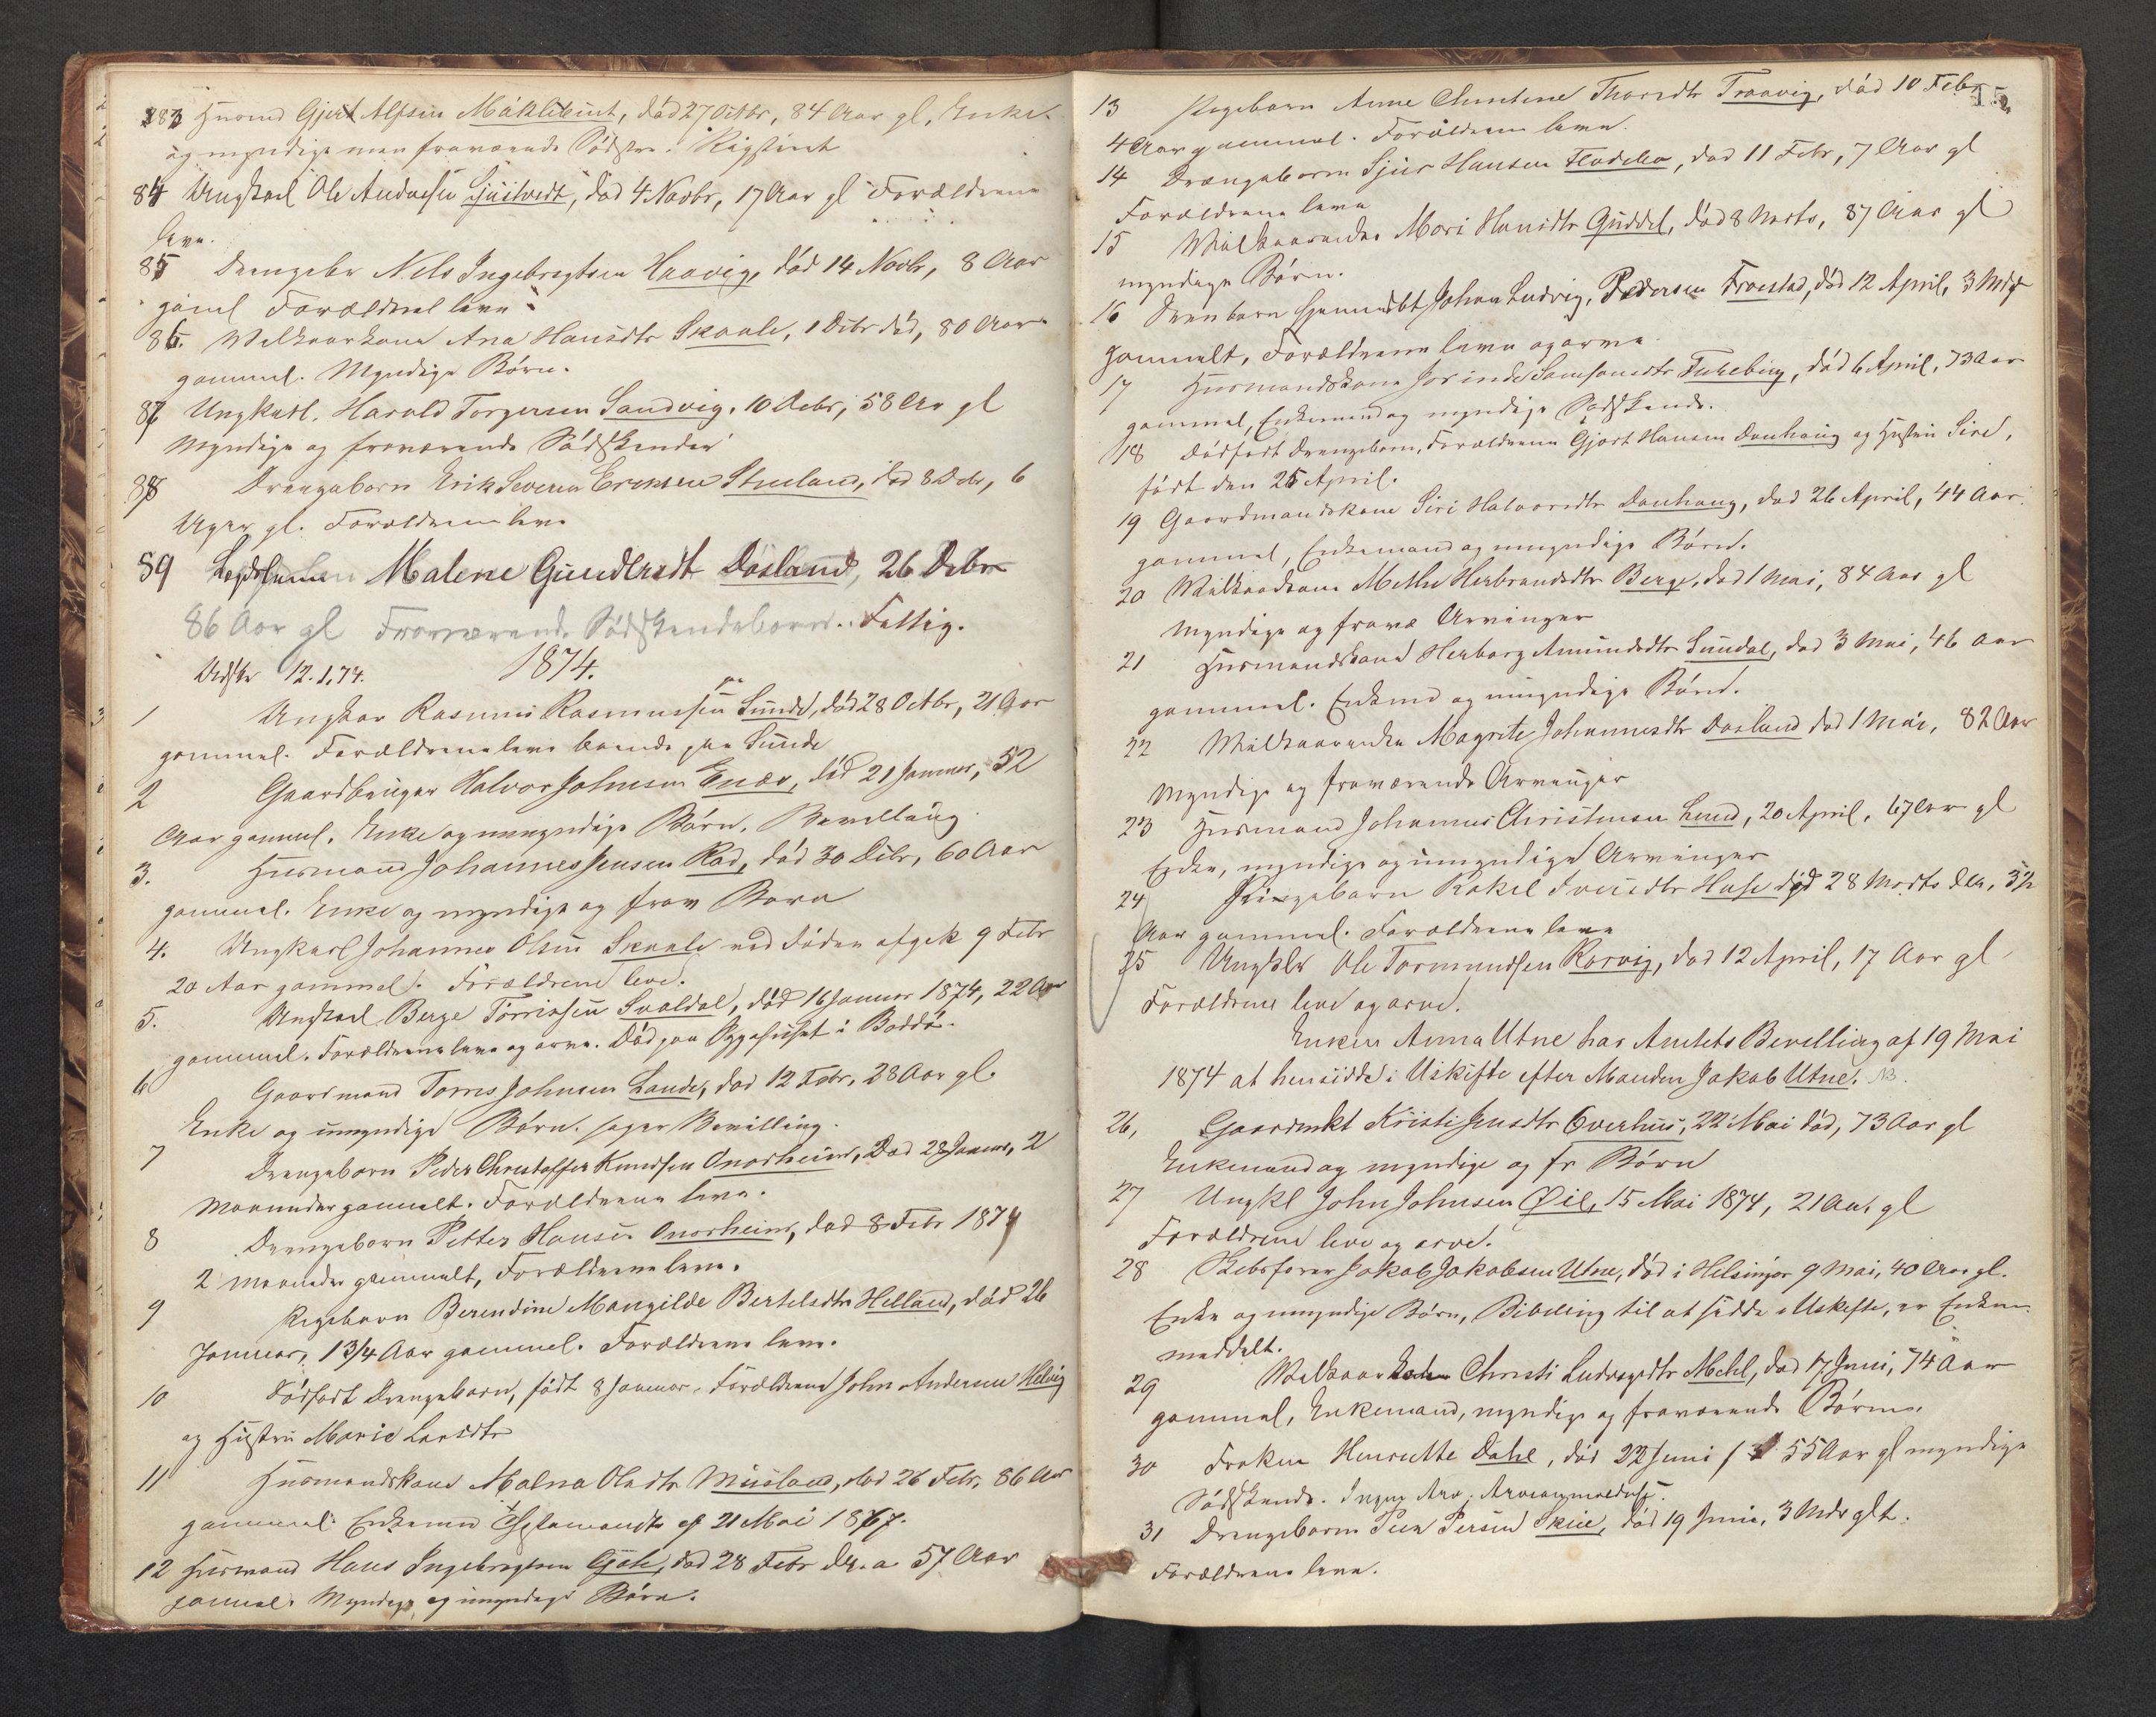 83 Husmd Gjert Alfsen Mäklebust, död 27 Octbr, 84 Aar gl, Enke
og myndige men fraværende Södskn. Rigstint
84 Ungkarl Ole Andersen Guitvedt, död 4 Novbr, 17 Aar gl Forældrene
leve.
85 Drengebr Nels Ingebregtsen Haavig, död 14 Novbr, 8 Aar
gaml Forældrene leve
86. Welkaarkone Ana Hansdtr Skaale, 1 Debr död, 80 Aar
gammel. Myndige Börn.
87 Ungkarl. Harald Torgersen Sandvig, 10 Debr, 58 Aar gl
Myndige og fraværende Södskender
88 Drengebarn Erik Severin Ericksen Stueland, död 8 Debr, 6
Uger gl. Forældrene leve
89 Lægdslem Malene Gundersdt Dösland, 26 Debr
86 Aar gl Fraværende Södskendebarn. Fattig.
Udskr 12.1.74. 1874.
1 Ungkar Rasmus Rasmussen Sunde, död 28 Octbr, 21 Aar
gammel. Forældrene leve boende paa Sunde
2 Gaardbruger Halvor Johnsen Enæs, död 21 Januar, 52
Aar gammel. Enke og umyndige Börn. Bevilling
3. Husmand Johannes Jensen Rød, död 30 Debr, 60 Aar
gammel. Enke og myndige og frav Børn
4. Ungkarl Johannes Olsen Skaale ved döden afgik 9 Febr
20 Aar gammel. Forældrene leve.
5. Ungkarl Berge Törrissen Svaldal, död 16 Januar 1874, 22 Aar
gammel. Forældrene leve og arve. Död paa Sygehuset i Boddö.
6 Gaardmand Torres Johnsen Lande, død 12 Febr, 28 Aar gl.
Enke og umyndige Börn. søger Bevilling.
7 Drengebarn Peder Christoffer Knudsen Onarheim, Död 28 Januar, 2
Maaneder gammelt. Forældrene leve.
8 Drengebarn Petter Hansen Onarheim, død 8 Febr 1874
2 Maaneder gammelt, Forældrene leve.
9 Pigebarn Berendine Mangilde Bertelsdtr Helland, död 26
Januar, 1 3/4 Aar gammel. Forældrene leve.
10 Dödfödt Drengebarn, födt 8 Januar. Forældrene John Andersen Helvig
og Hustru Marie Larsdtr
11 Husmandskone Malna Olsdtr Musland, død 26 Febr, 86 Aar
gammel. Enkemd Testamente af 21 Mai 1867.
12 Husmand Hans Ingebregtsen Gjøte, død 28 Febr d.a. 57 Aar
gammel. Myndige og umyndige Börn.
13 Pigebarn Anne Christene Thoresdtr Traavig, död 10 Febr
4 Aar gammel. Forældrene leve.
14 Drengebarn Sjur Hansen Flodebø, død 11 Febr, 7 Aar gl
Forældrene leve
15 Wilkaarenke Mari Hansdtr Guddal, död 8 Marts, 87 Aar gl
myndige Börn.
16 Drenbarn Johan Ludvig Pedersen Froestad, död 12 April, 3 Mdr
gammelt, Forældrene leve og arve
17 Husmandskone Jorinde Samsonsdtr Turebing, död 6 April, 73 Aar
gammel, Enkemand og myndige Södskende.
18 Dödfødt Drengebarn, Forældrene Gjert Hansen Døuhaug og Hustru Sire,
födt den 25 April.
19 Gaardmandskone Siri Halvorsdtr Døuhaug, død 26 April, 44 Aar
gammel, Enkemand og umyndige Börn.
20 Wilkaarkone Methe Herbrandsdtr Berge, død 1 Mai, 84 Aar gl
Myndige og fravæ Arvinger
21 Husmandskone Herborg Amundsdtr Sundal, død 3 Mai, 46 Aar
gammel. Enkemd og umyndige Börn.
22 Wilkaarenke Magrete Johannesdtr Døsland død 1 Mai, 82 Aar
Myndige og fraværende Arvinger
23 Husmand Johannes Christensen Lund, 20 April, 67 Aar gl
Enke, myndige og umyndige Arvinger
24 Pigebarn Rakel Iversdtr Huse död 28 Marts d.a, 3½
Aar gammel. Forældrene leve
25 Ungklr Ole Tormundsen Rørvig, død 12 April, 17 Aar gl
Forældrene leve og arve.
Enken Anna Utne har Amtets Bevilling af 19 Mai
1874 at hensidde i Uskifte efter Manden Jakob Utne. NB.
26, Gaardmkt Kristi Jensdtr Overhus, 22 Mai död, 73 Aar gl
Enkemand og myndige og fr Børn
27 Ungkl John Johnsen Øie, 15 Mai 1874, 21 Aar gl
Forældrene leve og arve.
28 Skibsfører Jakob Jakobsen Utne, död i Helsingør 9 Mai, 40 Aar gl.
Enke og umyndige Börn, Bevilling til at sidde i Uskifte, er Enken
meddelt.
29 Wilkaarkone Christi Ludvegsdtr Mehl, død 17 Juni, 74 Aar
gammel, Enkemand, myndige og fraværende Börn.
30 Frøken Henriette Dahl, död 22 Juni 55 Aar gl myndige
Södskende. Ingen Arv.
31 Drengebarn Peer Persen Skue, död 19 Juni, 3 Mdr glt.
Forældrene leve.